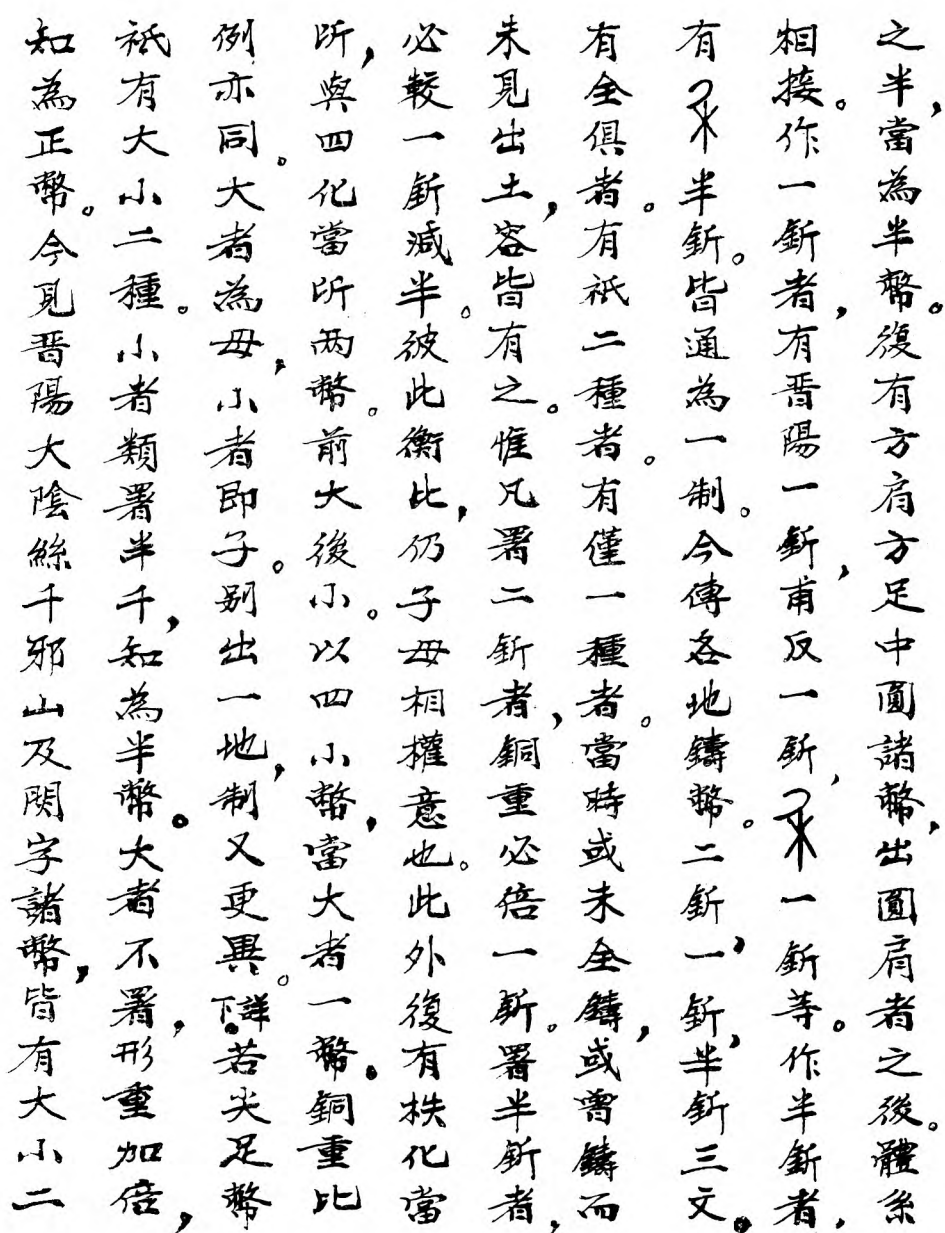 之半，當為半幣。復有方肩方足中圓諸幣，出圓肩者之後。體系
相接。作一釿者，有晋陽一釿，甫反一釿，一釿等。作半釿者，
有半釿。皆通為一制。今傳各地鑄幣。二釿，一釿，半釿三文。
有全俱者。有祇二種者。有僅一種者。當時或未全鑄，或曾鑄而
未見出土，容皆有之。惟凡署二釿者，銅重必倍一釿。署半釿者，
必較一釿減半。彼此衡比，仍子母相權意也。此外復有梻化當
所，與四化當所两幣。前大後小。以四小幣，當大者一幣。銅重比
例亦同。大者為母，小者即子。别出一地，制又更異。詳下。若尖足幣
祇有大小二種。小者類署半千，知為半幣。大者不署，形重加倍，
知為正幣。今見晋陽大陰絲千邪山及閔字諸幣，皆有大小二